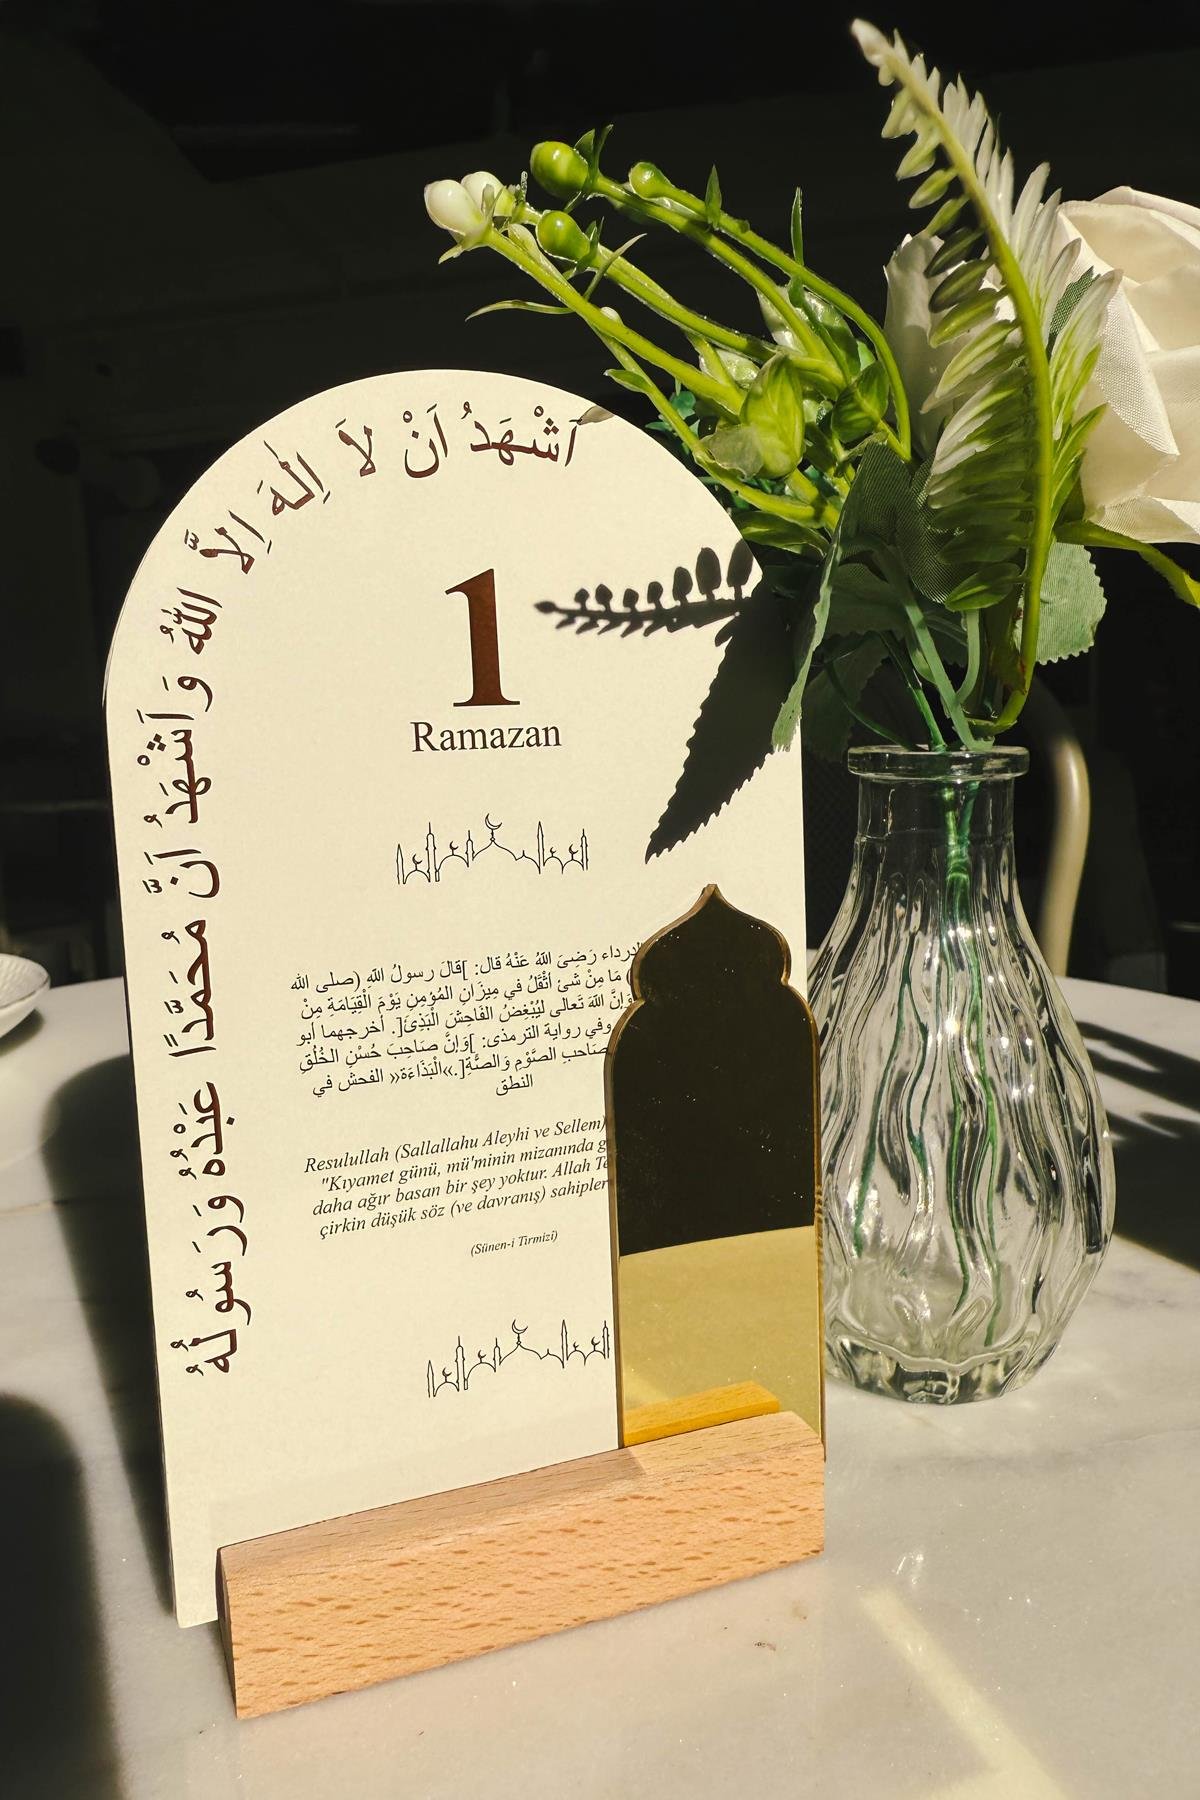 اَشْهَدُ اَنْ لَا اِلٰهَ اِلَّا اللّٰهُ وَاَشْهَدُ اَنَّ مُحَمَّدًا عَبْدُهُ وَرَسُولُهُ
1
Ramazan
الدرداء رَضِىَ اللّهُ عَنْهُ قال: ]قَالَ رسولُ اللّهِ (صلى الله
) مَا مِنْ شَئٍ أثْقَلُ في مِيزَانِ المُؤمِنِ يَوْمَ الْقِيَامَةِ مِنْ
وَإنَّ اللّهَ تَعالى لَيُبْغِضُ الفَاحِشَ الْبَذِئَ[. أخرجهما أبو
وفي رواية الترمذى: ]وَإنَّ صَاحِبَ حُسْنِ الخُلُقِ
صَاحبِ الصَّوْمِ وَالصَّةِ[.»الْبَذَاءَة« الفحش في
النطق
Resulullah (Sallallahu Aleyhi ve Sellem)
"Kıyamet günü, mü'minin mizanında
daha ağır basan bir şey yoktur. Allah
çirkin düşük söz (ve davranış)
(Sünen-i Tirmizi)